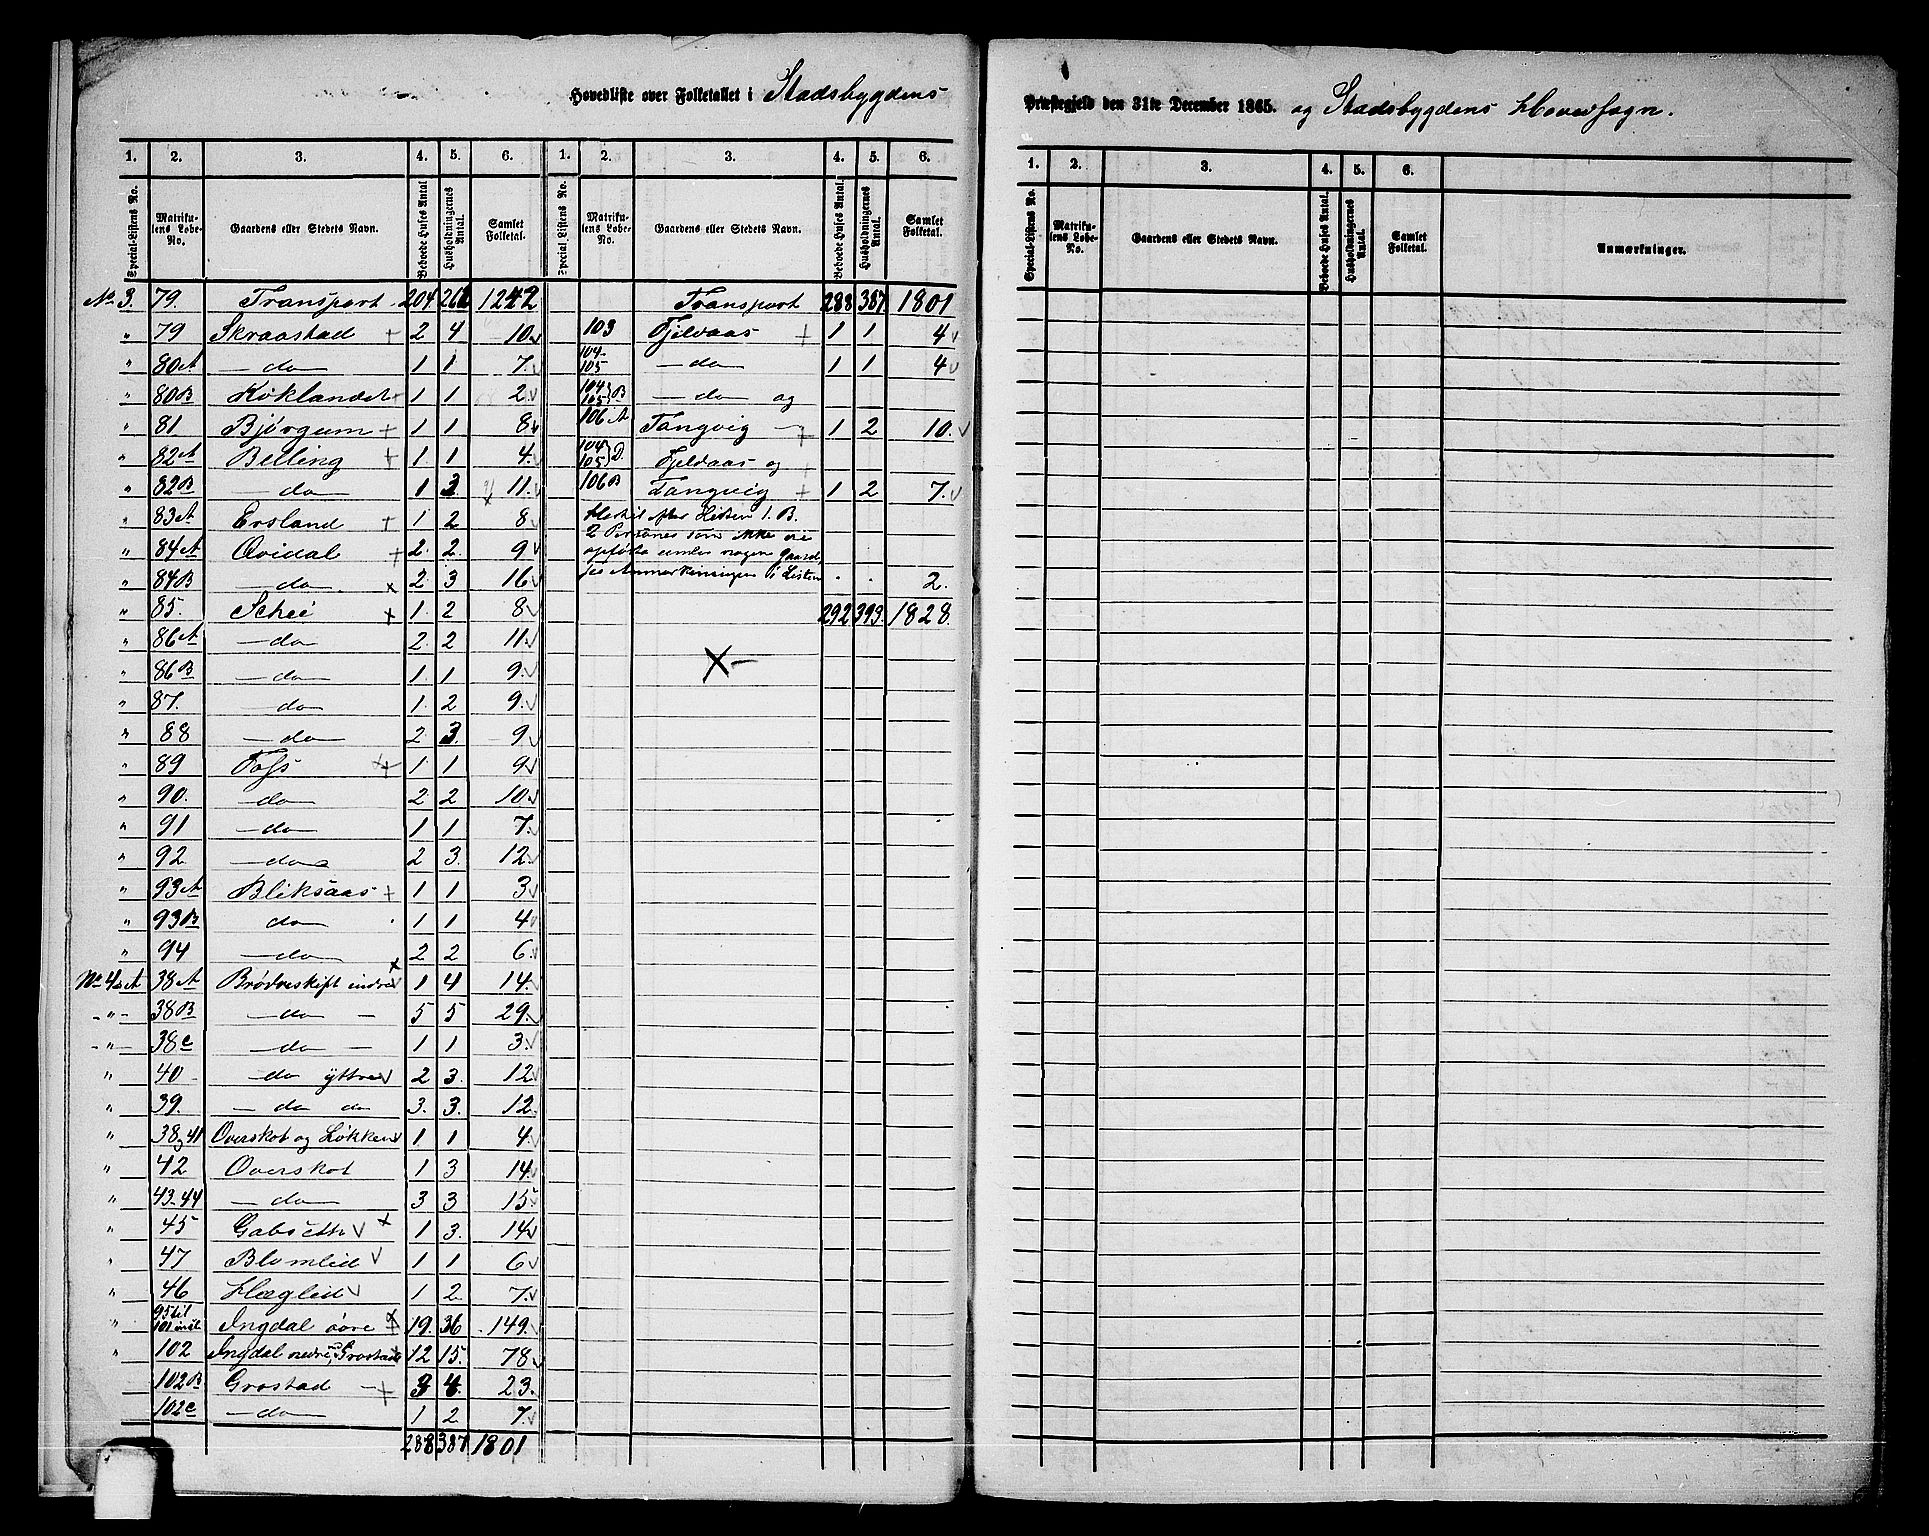 Hovedliste over Folketallet i Stadsbygdens
1. 2. 3. 4. 5. 6. 1. 2. 3. 4. 5. 6.
Special-Listens No. Matriku-lens Løbe-No. Gaardens eller Stedets Navn. Beboede Huses Antal Husholdningernes Antal. Samlet Folketal. Special Listens No. Matriku-lens Løbe-No. Gaardens eller Stedets Navn. Beboede Huses Antal. Husholdningernes Antal. Samlet Folketal.
No 3. 79. Transport 204 262 1242
" 79 Skraastad + 2 4 10
" 80A — do — 1 1 7.
" 80B Køklandet + 1 1 2
" 81 Bjørgum + 1 1 8
" 82A Belling + 1. 1 4.
" 82B — do — 1 3 11.
" 83A Ersland + 1 2 8
" 84A Qvidal + 2. 2. 9
" 84B — do — x 2. 3 16
" 85. Schei x 1. 2 8
" 86A — do — 2. 2 11.
" 86B — do — 1 1 9.
" 87. — do — 1 2 9.
" 88 — do — 2 3. 9
" 89 Foss + 1. 1 9
" 90. — do — 2 2 10.
" 91 — do — 1 1 7.
" 92 — do — 2 3. 12.
" 93A Bliksaas + 1 1 3
" 93B do 1 1 4
" 94 — do — 2 2 6.
No 4. A 38A Brødreskift indre 1 4 14.
- " - 38B — do — 5 5 29.
- " - 38C — do — 1 1 3.
" 40 — do yttre 2 3. 12
" 39. — do do 3. 3. 12.
" 38 & 41 Overskot og Løkken 1 1 4.
" 42 Overskot 1 3 14.
" 43-44 — do — 3 3 15
" 45 Gabsetth x 1 3. 14
" 47 Blomlid 1 1 6
" 46 Hæglid 1 2. 7.
" 95 til 101 inkl. Ingdal øvre 19. 36 149.
" 102 Ingdal nedre, Grostad 12 15. 78
102B Grostad — + 3 4 23.
102C — do — 1 2 7.
288 387 1801
Transport 288 387. 1801
103 Fjeldaas + 1 1 4
104- 105 — do — 1 1 4
104 105 } B — do — og
106A Tangvig — + 1 2 10.
104 105 } D. Fjeldaas og
106B Tangvig + 1 2 7.
Hertil efter Listen 1. B.
2 Personer som ikke ere
opførte under nogen Gaard,
se Anmerkningen i Listen . . 2.
292 393. 1828.
X —
Præstegjeld den 31te December 1865. og Stadsbygdens Hovedsogn.
1. 2. 3. 4. 5. 6.
Special-Listens No. Matriku-lens Løbe-No. Gaardens eller Stedets Navn. Beboede Huses Antal. Husholdningernes Antal. Samlet Folketal. Anmærkninger.